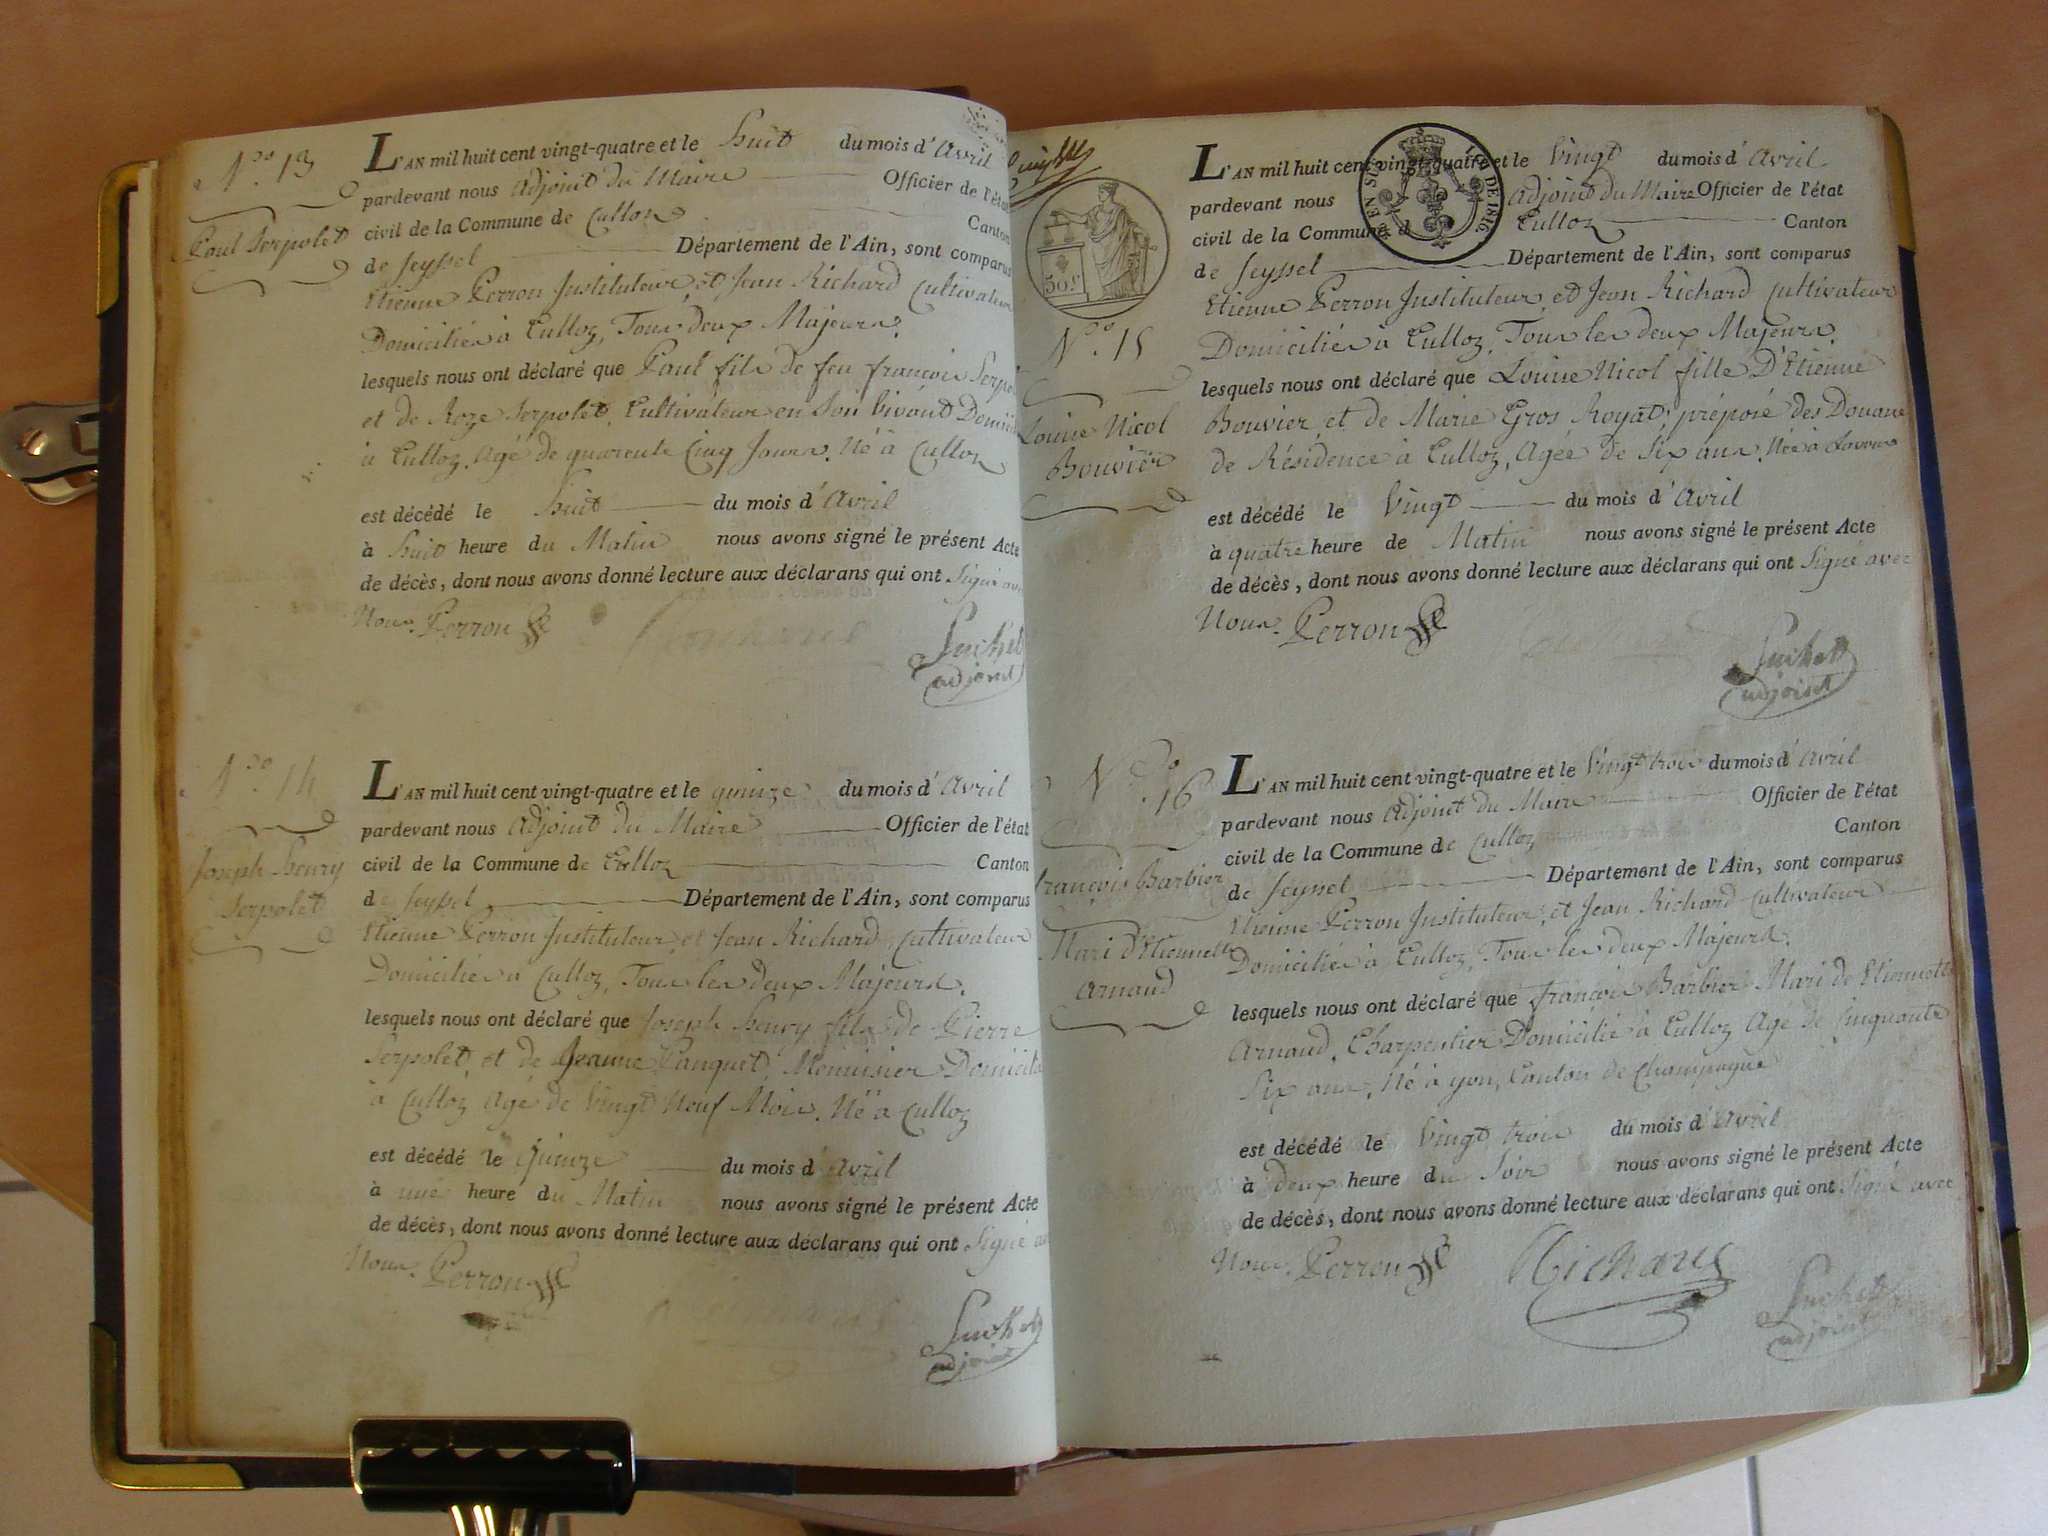 N.o 13
Paul Serpolet
L'AN mil huit cent vingt-quatre et le huit du mois d'Avril
pardevant nous Adjoint du Maire Officier de l'état
civil de la Commune de Culloz Canton
de Seyssel Département de l'Ain, sont comparus
Etienne Perron Instituteur, et Jean Richard Cultivateur
Domiciliés à Culloz, Tous deux Majeurs.
lesquels nous ont déclaré que Paul fils de feu françois Serpo
et de Roze Serpolet, Cultivateur en Son vivant Domici
à Culloz, Agé de quarente Cinq Jours, Né à Culloz
est décédé le huit du mois d'Avril
à huit heure du Matin nous avons signé le présent Acte
de décès, dont nous avons donné lecture aux déclarans qui ont Signé avec
Nous. Perron
Suchet
adjoint
N.o 14
Joseph henry
Serpolet
L'AN mil huit cent vingt-quatre et le quinze du mois d'Avril
pardevant nous Adjoint du Maire Officier de l'état
civil de la Commune de Culloz Canton
de Seyssel Département de l'Ain, sont comparus
Etienne Perron Instituteur, et Jean Richard Cultivateur
Domiciliés à Culloz, Tous les deux Majeurs.
lesquels nous ont déclaré que Joseph henry fils de Pierre
Serpolet, et de Jeanne Panquet, Menuisier Domicilié
à Culloz Agé de Vingt Neuf Mois, Né à Culloz
est décédé le Quinze du mois d'Avril
à une heure du Matin nous avons signé le présent Acte
de décès, dont nous avons donné lecture aux déclarans qui ont Signé
Nous. Perron
Suchet
adjoint
50 c
EN SUS DE 1816
N.o 15
Louise Nicol
Bouvier
L'AN mil huit cent vingt-quatre et le Vingt du mois d'Avril
pardevant nous Adjoint du Maire Officier de l'état
civil de la Commune d Culloz Canton
de Seyssel Département de l'Ain, sont comparus
Etienne Perron Instituteur, et Jean Richard Cultivateur
Domiciliés à Culloz, Tous les deux Majeurs.
lesquels nous ont déclaré que Louise Nicol fille D'Etienne
Bouvier, et de Marie Gros Royat, préposé des Douane
de Résidence à Culloz, Agée de Six ans, Née à
est décédé le Vingt du mois d'Avril
à quatre heure de Matin nous avons signé le présent Acte
de décès, dont nous avons donné lecture aux déclarans qui ont Signé avec
Nous. Perron
Suchet
adjoint
N.o 16
françois Barbier
Mari d'Etiennette
Arnaud
L'AN mil huit cent vingt-quatre et le Vingt trois du mois d'Avril
pardevant nous Adjoint du Maire Officier de l'état
civil de la Commune de Culloz Canton
de Seyssel Département de l'Ain, sont comparus
Etienne Perron Instituteur, et Jean Richard Cultivateur
Domiciliés à Culloz, Tous les deux Majeurs.
lesquels nous ont déclaré que françois Barbier Mari de Etiennette
Arnaud, Charpentier Domicilié à Culloz Agé de Cinquante
Six ans, Né à yon, Canton de Champagne
est décédé le Vingt trois du mois d'Avril
à deux heure du Soir nous avons signé le présent Acte
de décès, dont nous avons donné lecture aux déclarans qui ont Signé avec
Nous. Perron Richard
Suchet
adjoint